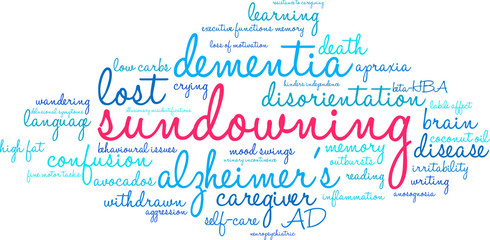 resistance to caregiving
learning
executive functions memory
loss of motivation
death
dementia
low carbs
apraxia
crying
hinders independence
beta-HBA
lost
disorientation
wandering
delusional symptoms
labile effect
language
sundowning
brain
coconut oil
high fat
behavioural issues
mood swings
memory
disease
confusion
urinary incontinence
outbursts
irritability
fine motor tasks
alzheimer's
avocados
reading
writing
withdrawn
caregiver
inflammation
anosognosia
aggression
self-care
AD
neuropsychiatric